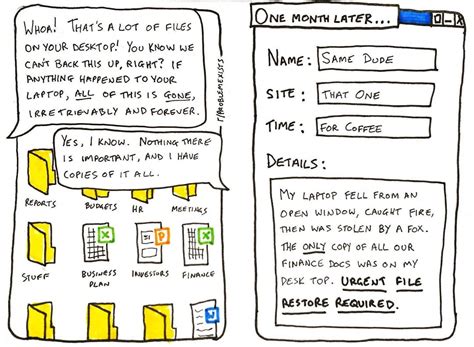 WHOA! THAT'S A LOT OF FILES
ON YOUR DESKTOP! YOU KNOW WE
CAN'T BACK THIS UP, RIGHT? IF
ANYTHING HAPPENED TO YOUR
LAPTOP, ALL OF THIS IS GONE,
IRRETRIEVABLY AND FOREVER.
YES, I KNOW. NOTHING THERE
IS IMPORTANT, AND I HAVE
COPIES OF IT ALL.
REPORTS BUDGETS HR MEETINGS
X P X
STUFF BUSINESS PLAN INVESTORS FINANCE
ONE MONTH LATER...
NAME: SAME DUDE
SITE: THAT ONE
TIME: FOR COFFEE
DETAILS:
MY LAPTOP FELL FROM AN
OPEN WINDOW, CAUGHT FIRE,
THEN WAS STOLEN BY A FOX.
THE ONLY COPY OF ALL OUR
FINANCE DOCS WAS ON MY
DESK TOP. URGENT FILE
RESTORE REQUIRED.